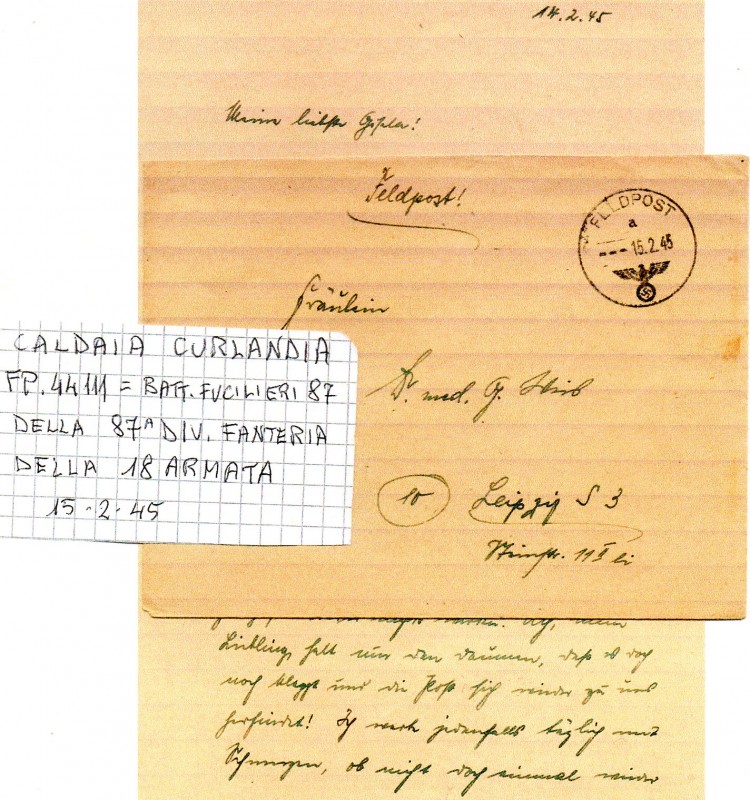 14.2.45
Meine liebste Gisela!
Feldpost!
FELDPOST
a
--- 15.2.45
Fräulein
Dr. med. G.
10
Leipzig S 3
11 II li
CALDAIA CURLANDIA
FP. 44111 = BATT. FUCILIERI 87
DELLA 87ª DIV. FANTERIA
DELLA 18 ARMATA
15-2-45
Ach, mein
Liebling, halt nur den Daumen, daß es doch
noch klappt und die Post sich wieder zu uns
herfindet! Ich warte jedenfalls täglich mit
Schmerzen, ob nicht doch einmal wieder